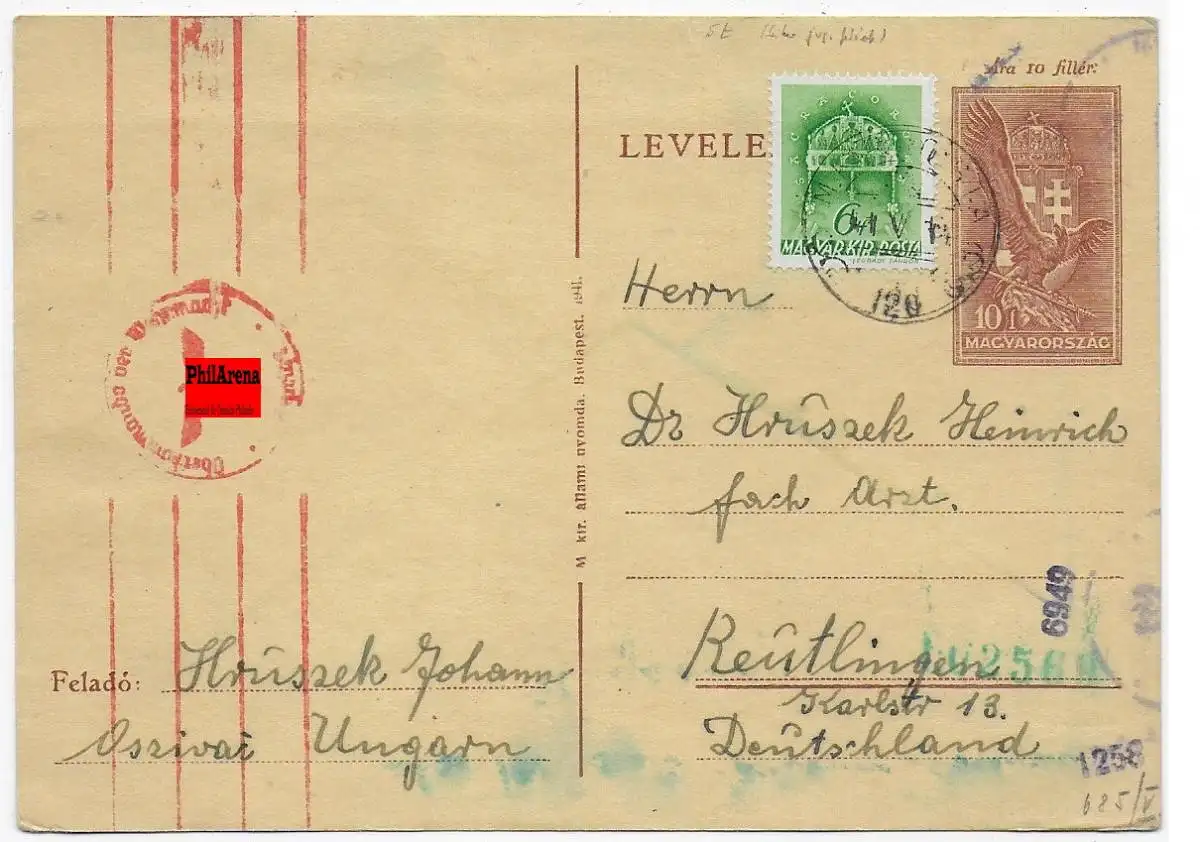 ára 10 fillér.
LEVELE
6f
MAGYAR KIR. POSTA
10
MAGYARORSZÁG
120
Herrn
Dr Hrúszek Heinrich
fach Arzt.
Reutlingen
Karlstr 13.
Deutschland
Feladó: Hrúszek Johann
Oszivac Ungarn
M. kir. állami nyomda. Budapest. 1941.
Oberkommando der Wehrmacht
PhilArena
6949
1258
685/V